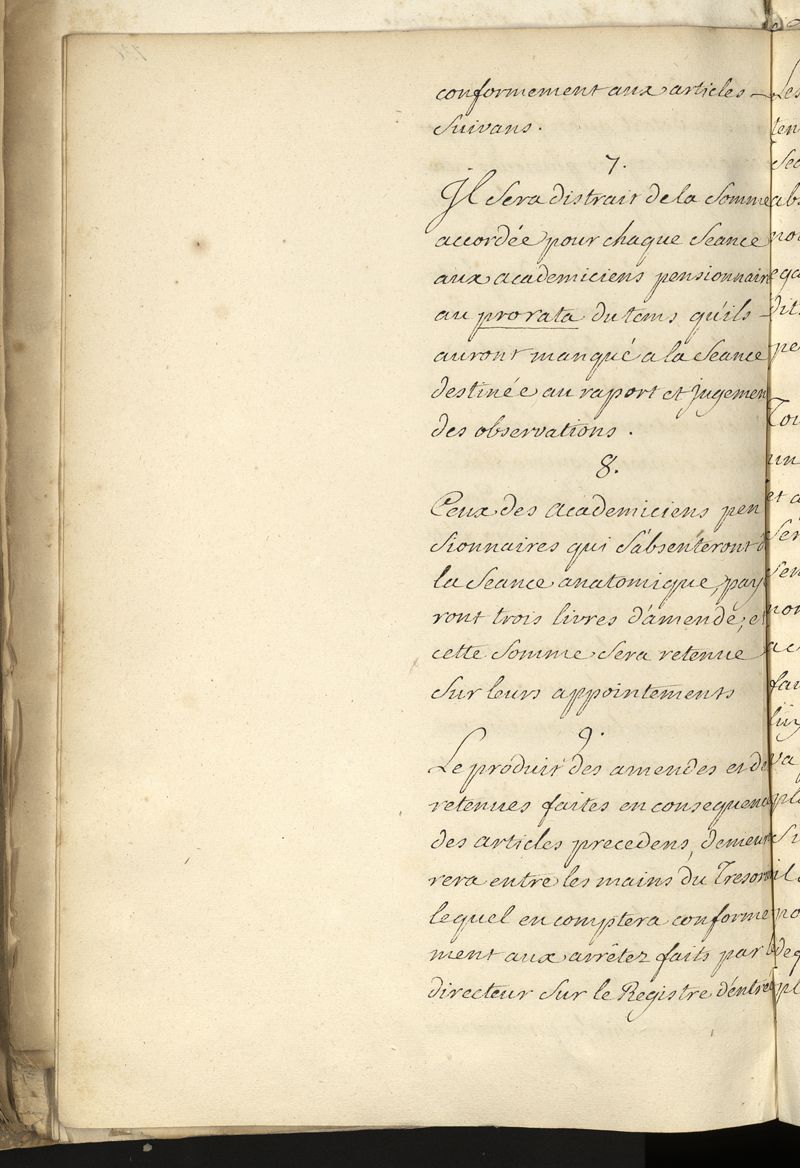 conformement aux articles
Suivans.
7.
Il Sera distrait de la Somme
accordée pour chaque Seance
aux academiciens pensionnaire
au prorata du tems qu'ils
auront manqué a la Seance
destinée au raport et jugemen
des observations.
8.
Ceux des academiciens pen
sionnaires qui S'absenteront d
la Seance anatomique, pay
ront trois livres d'amende, et
cette Somme Sera retenue
Sur leurs appointements
9.
Le produit des amendes et d
retenues faites en consequenc
des articles precedens, demeur
rera entre les mains du Tresor
lequel en comptera conforme
ment aux arrêtez faits par l
directeur Sur le Registre d'entrée